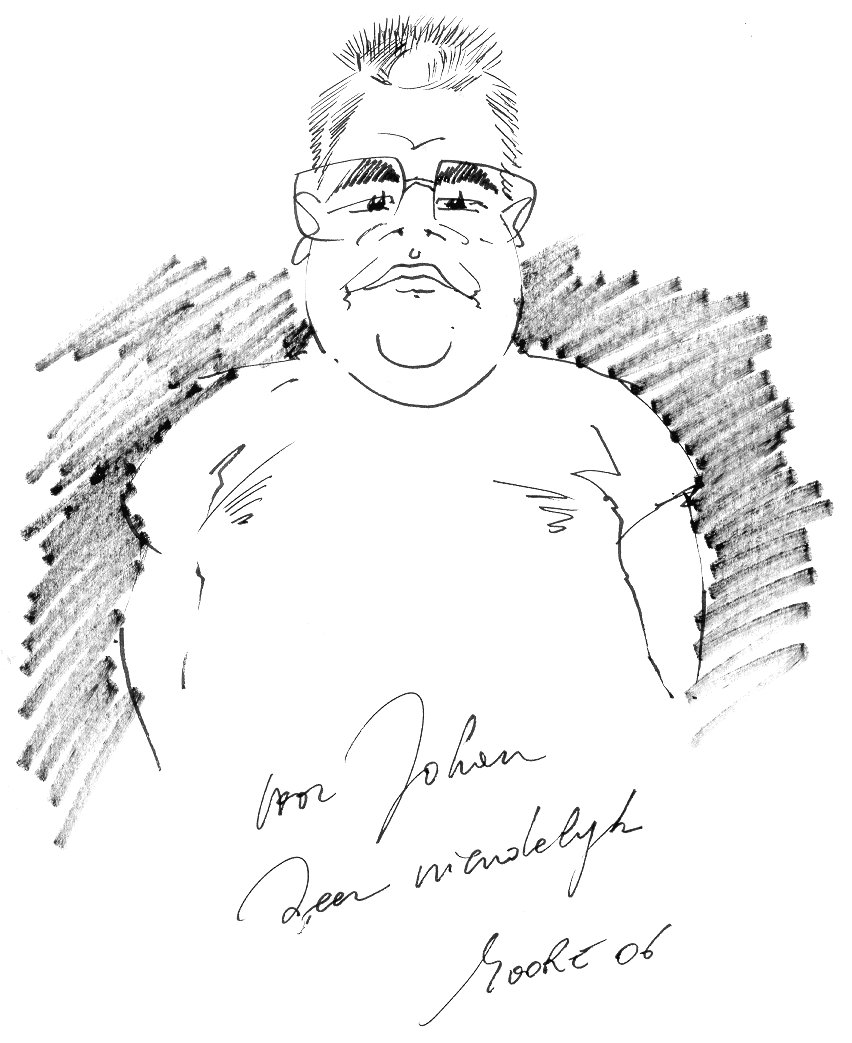 voor Johan
Zeer vriendelijk
GOORE 06